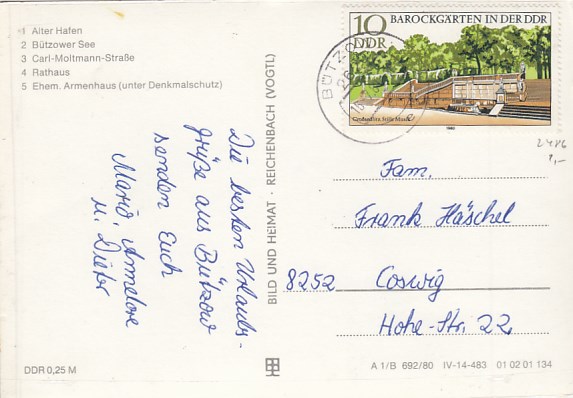 1 Alter Hafen
2 Bützower See
3 Carl-Moltmann-Straße
4 Rathaus
5 Ehem. Armenhaus (unter Denkmalschutz)
10 BAROCKGÄRTEN IN DER DDR
DDR
Großsedlitz, Stille Musik
1980
BÜTZO
Die besten Urlaubs-
grüße aus Bützow
senden Euch
Mario, Annelore
u. Dieter
BILD UND HEIMAT · REICHENBACH (VOGTL)
Fam.
Frank Häschel
8252 Coswig
Hohe-Str. 22
DDR 0,25 M
A 1/B 692/80 IV-14-483 01 02 01 134